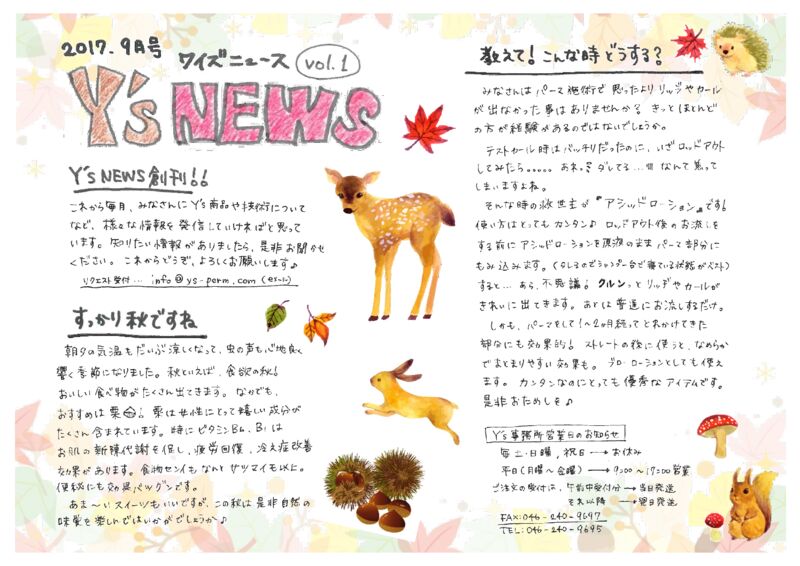 2017. 9月号
ワイズニュース
vol.1
Y's NEWS
Y's NEWS 創刊!!
これから毎月、みなさんにY's商品や技術について
など、様々な情報を発信していければと思って
います。知りたい情報がありましたら、是非お聞かせ
ください。これからどうぞ、よろしくお願いします♪
リクエスト受付… info@ys-perm.com (まで)
すっかり秋ですね
朝夕の気温もだいぶ涼しくなって、虫の声も心地良く
響く季節になりました。秋といえば、食欲の秋!
おいしい食べ物がたくさん出てきます。なかでも、
おすすめは栗! 栗は女性にとって嬉しい成分が
たくさん含まれています。特にビタミンB6、B1は
お肌の新陳代謝を促し、疲労回復、冷え症改善
効果があります。食物センイもなんとサツマイモ以上。
便秘にも効果バツグンです。
あま〜いスイーツもいいですが、この秋は是非自然の
味覚を楽しんではいかがでしょうか♪
教えて! こんな時どうする?
みなさんはパーマ施術で思ったよりリッヂやカール
が出なかった事はありませんか? きっとほとんど
の方が経験があるのではないでしょうか。
テストカール時はバッチリだったのに、いざロッドアウト
してみたら。。。。。あれっ? ダレてる…!!! なんて焦って
しまいますよね。
そんな時の救世主が『アシッドローション』です!
使い方はとってもカンタン♪ ロッドアウト後のお流しを
する前にアシッドローションを原液のままパーマ部分に
もみ込みます。(タレるのでシャンプー台で寝ている状態がベスト)
すると… あら、不思議! クルンっとリッヂやカールが
きれいに出てきます。あとは普通にお流しするだけ。
しかも、パーマをして1〜2ヵ月経ってとれかけてきた
部分にも効果的! ストレートの後に使うと、なめらか
でまとまりやすい効果も。ブローローションとしても使え
ます。カンタンなのにとっても優秀なアイテムです。
是非おためしを♪
Y's事務所営業日のお知らせ
毎土・日曜、祝日 → お休み
平日(月曜〜金曜) → 9:00〜17:00営業
ご注文の受付は、午前中受付分 → 当日発送
それ以降 → 翌日発送
FAX:046-240-9697
TEL:046-240-9695